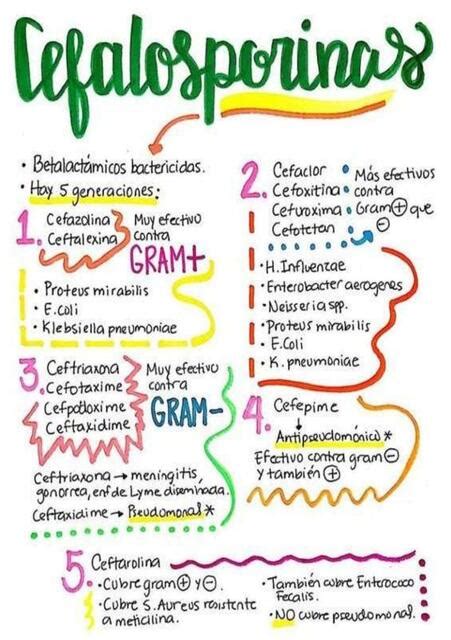 Cefalosporinas
• Betalactámicos bactericidas.
• Hay 5 generaciones:
1. Cefazolina
Ceftalexina
Muy efectivo
contra
GRAM+
• Proteus mirabilis
• E.coli
• Klebsiella pneumoniae
2. Cefaclor
Cefoxitina
Cefuroxima
Cefotetan
Más efectivos
contra
Gram + que
-
• H. Influenzae
• Enterobacter aerogenes
• Neisseria spp.
• Proteus mirabilis
• E.Coli
• K. pneumoniae
3. Ceftriaxona
Cefotaxime
Cefpodoxime
Ceftaxidime
Muy efectivo
contra
GRAM-
Ceftriaxona → meningitis,
gonorrea, enf de Lyme diseminada.
Ceftaxidime → Pseudomonas*
4. Cefepime
↓
Antipseudomónico *
Efectivo contra gram -
y también +
5. Ceftarolina
• Cubre gram + y -.
• Cubre S. Aureus resistente
a meticilina.
• También cubre Enterococo
Fecalis.
• NO cubre pseudomonal.